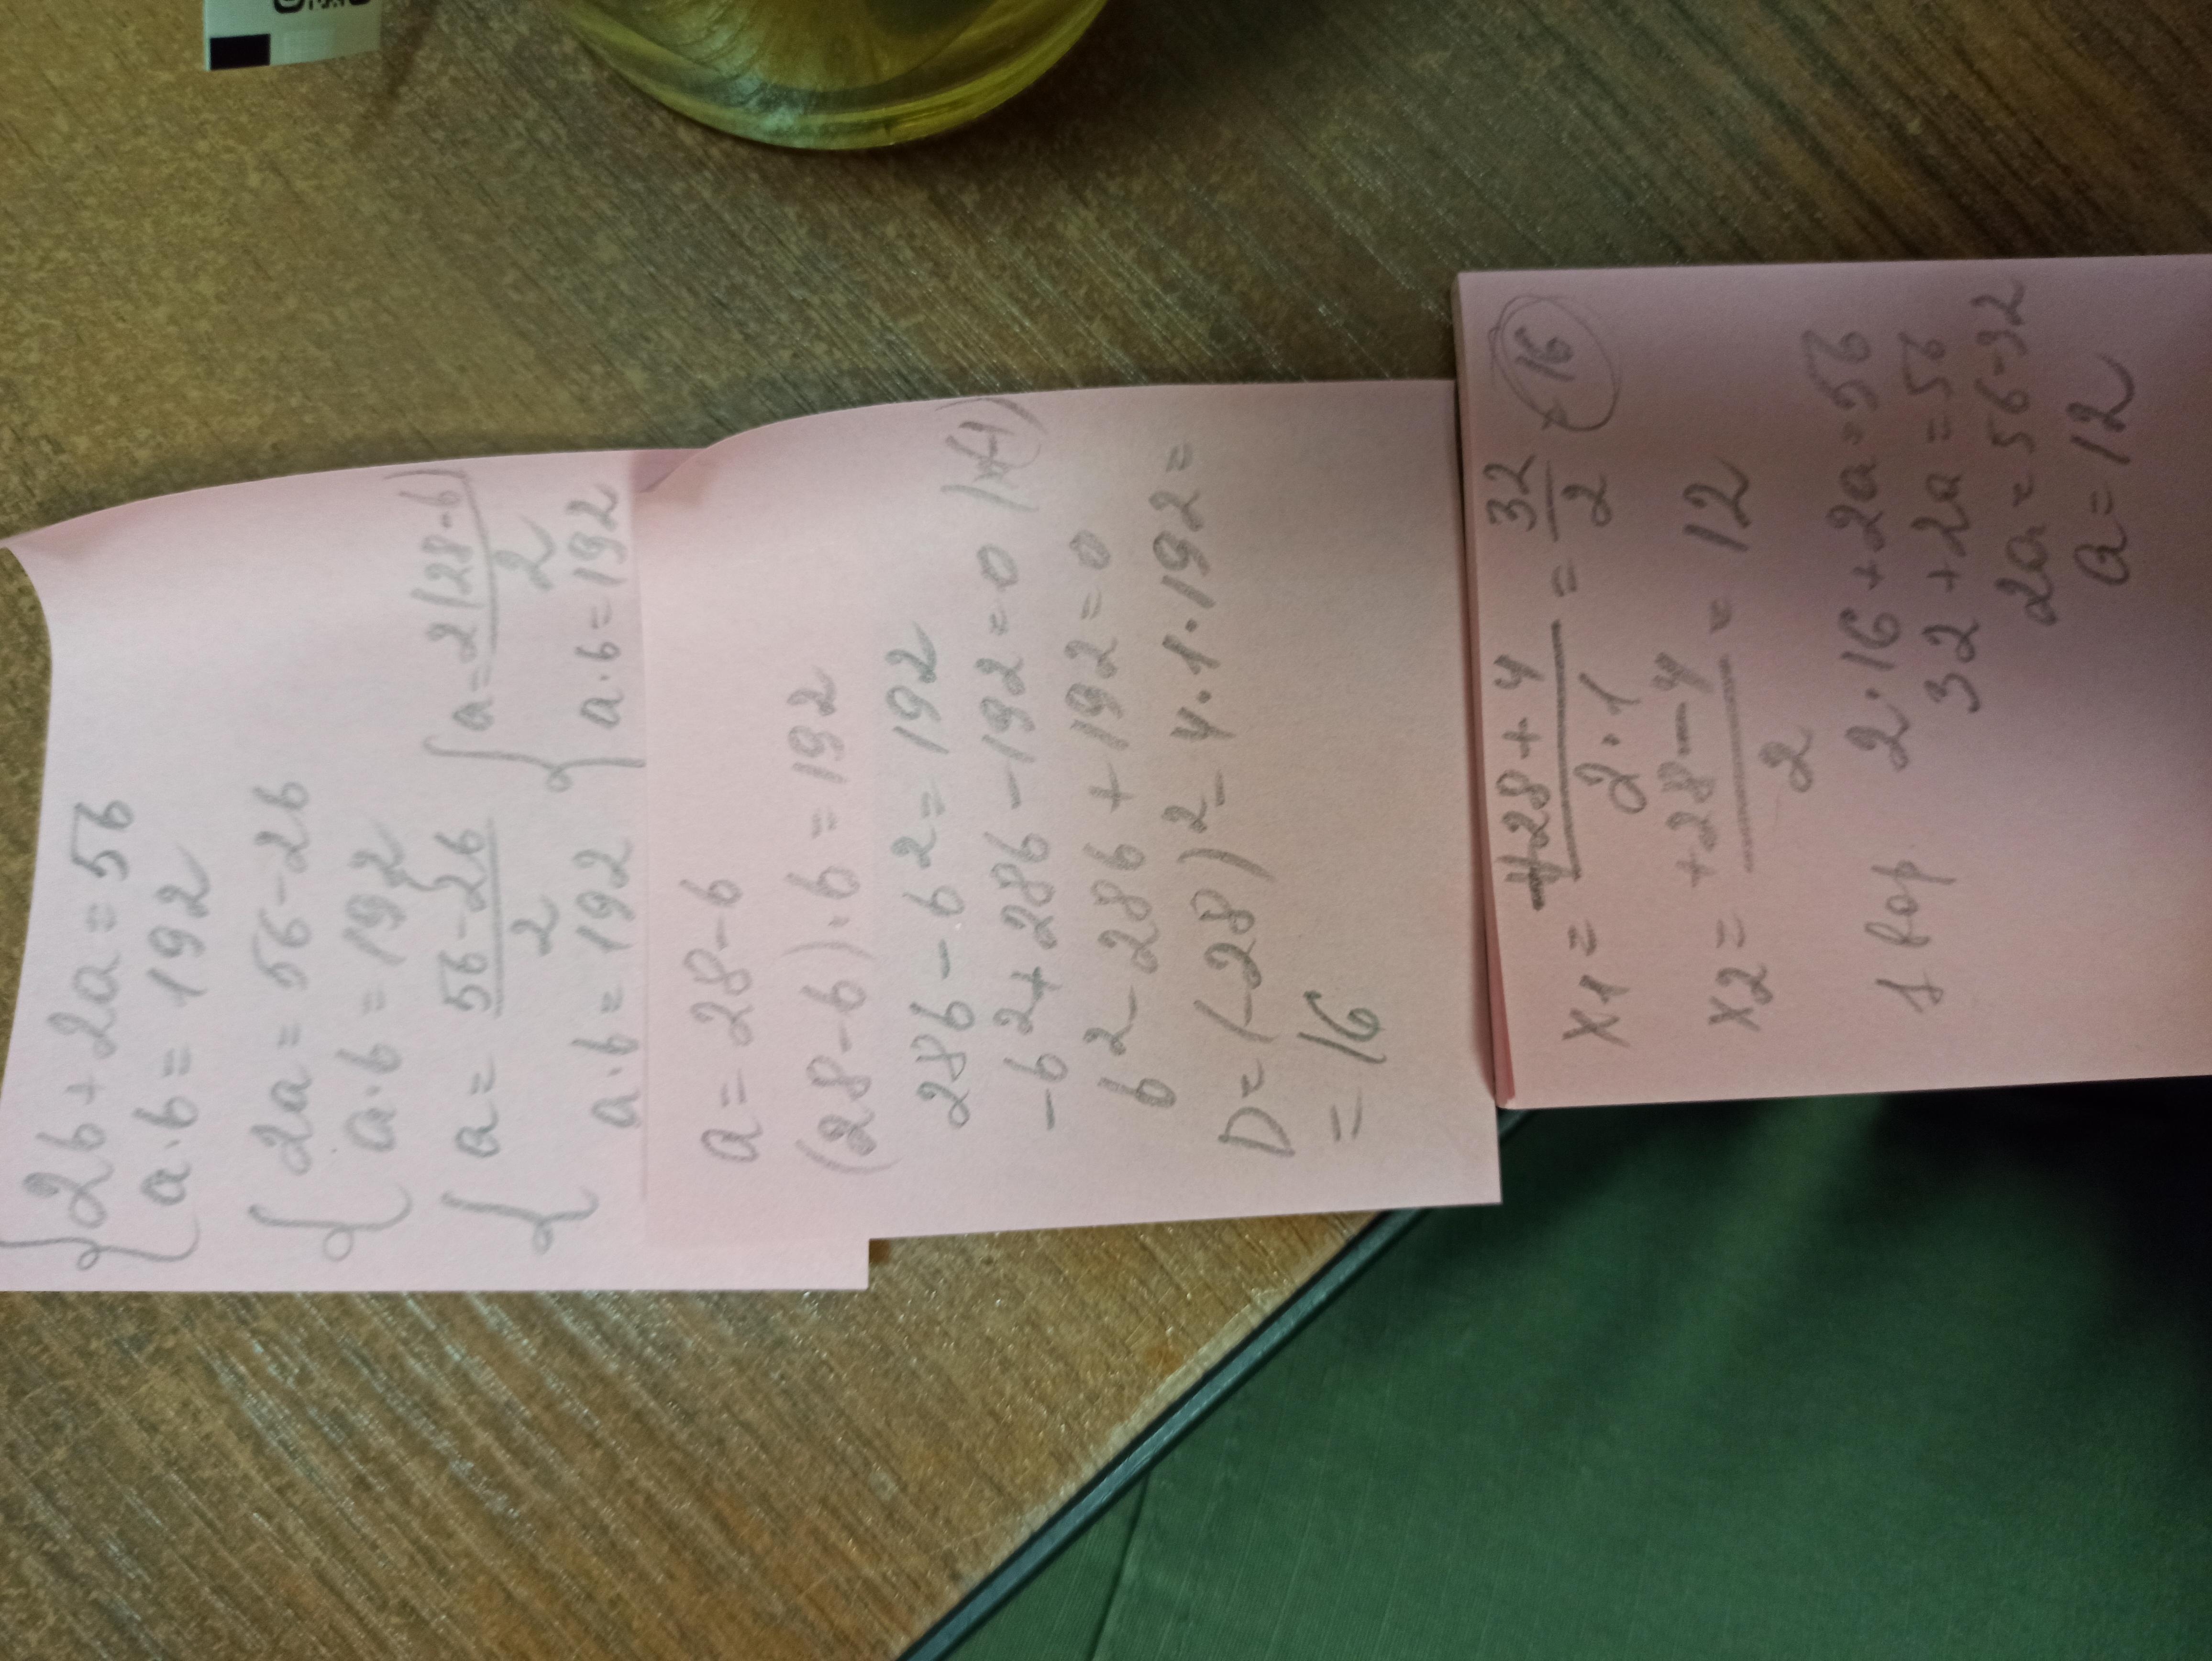 {2b+2a=56
a·b=192
{2a=56-2b
a·b=192
{a=56-2b/2 {a=2(28-b)/2
a·b=192 {a·b=192
a=28-b
(28-b)·b=192
28b-b²=192
-b²+28b-192=0
b²-28b+192=0
D=(-28)²-4·1·192=
=16
x1=+28+4/2·1=32/2=16
x2=+28-4/2=12
2·16+2a=56
32+2a=56
2a=56-32
a=12